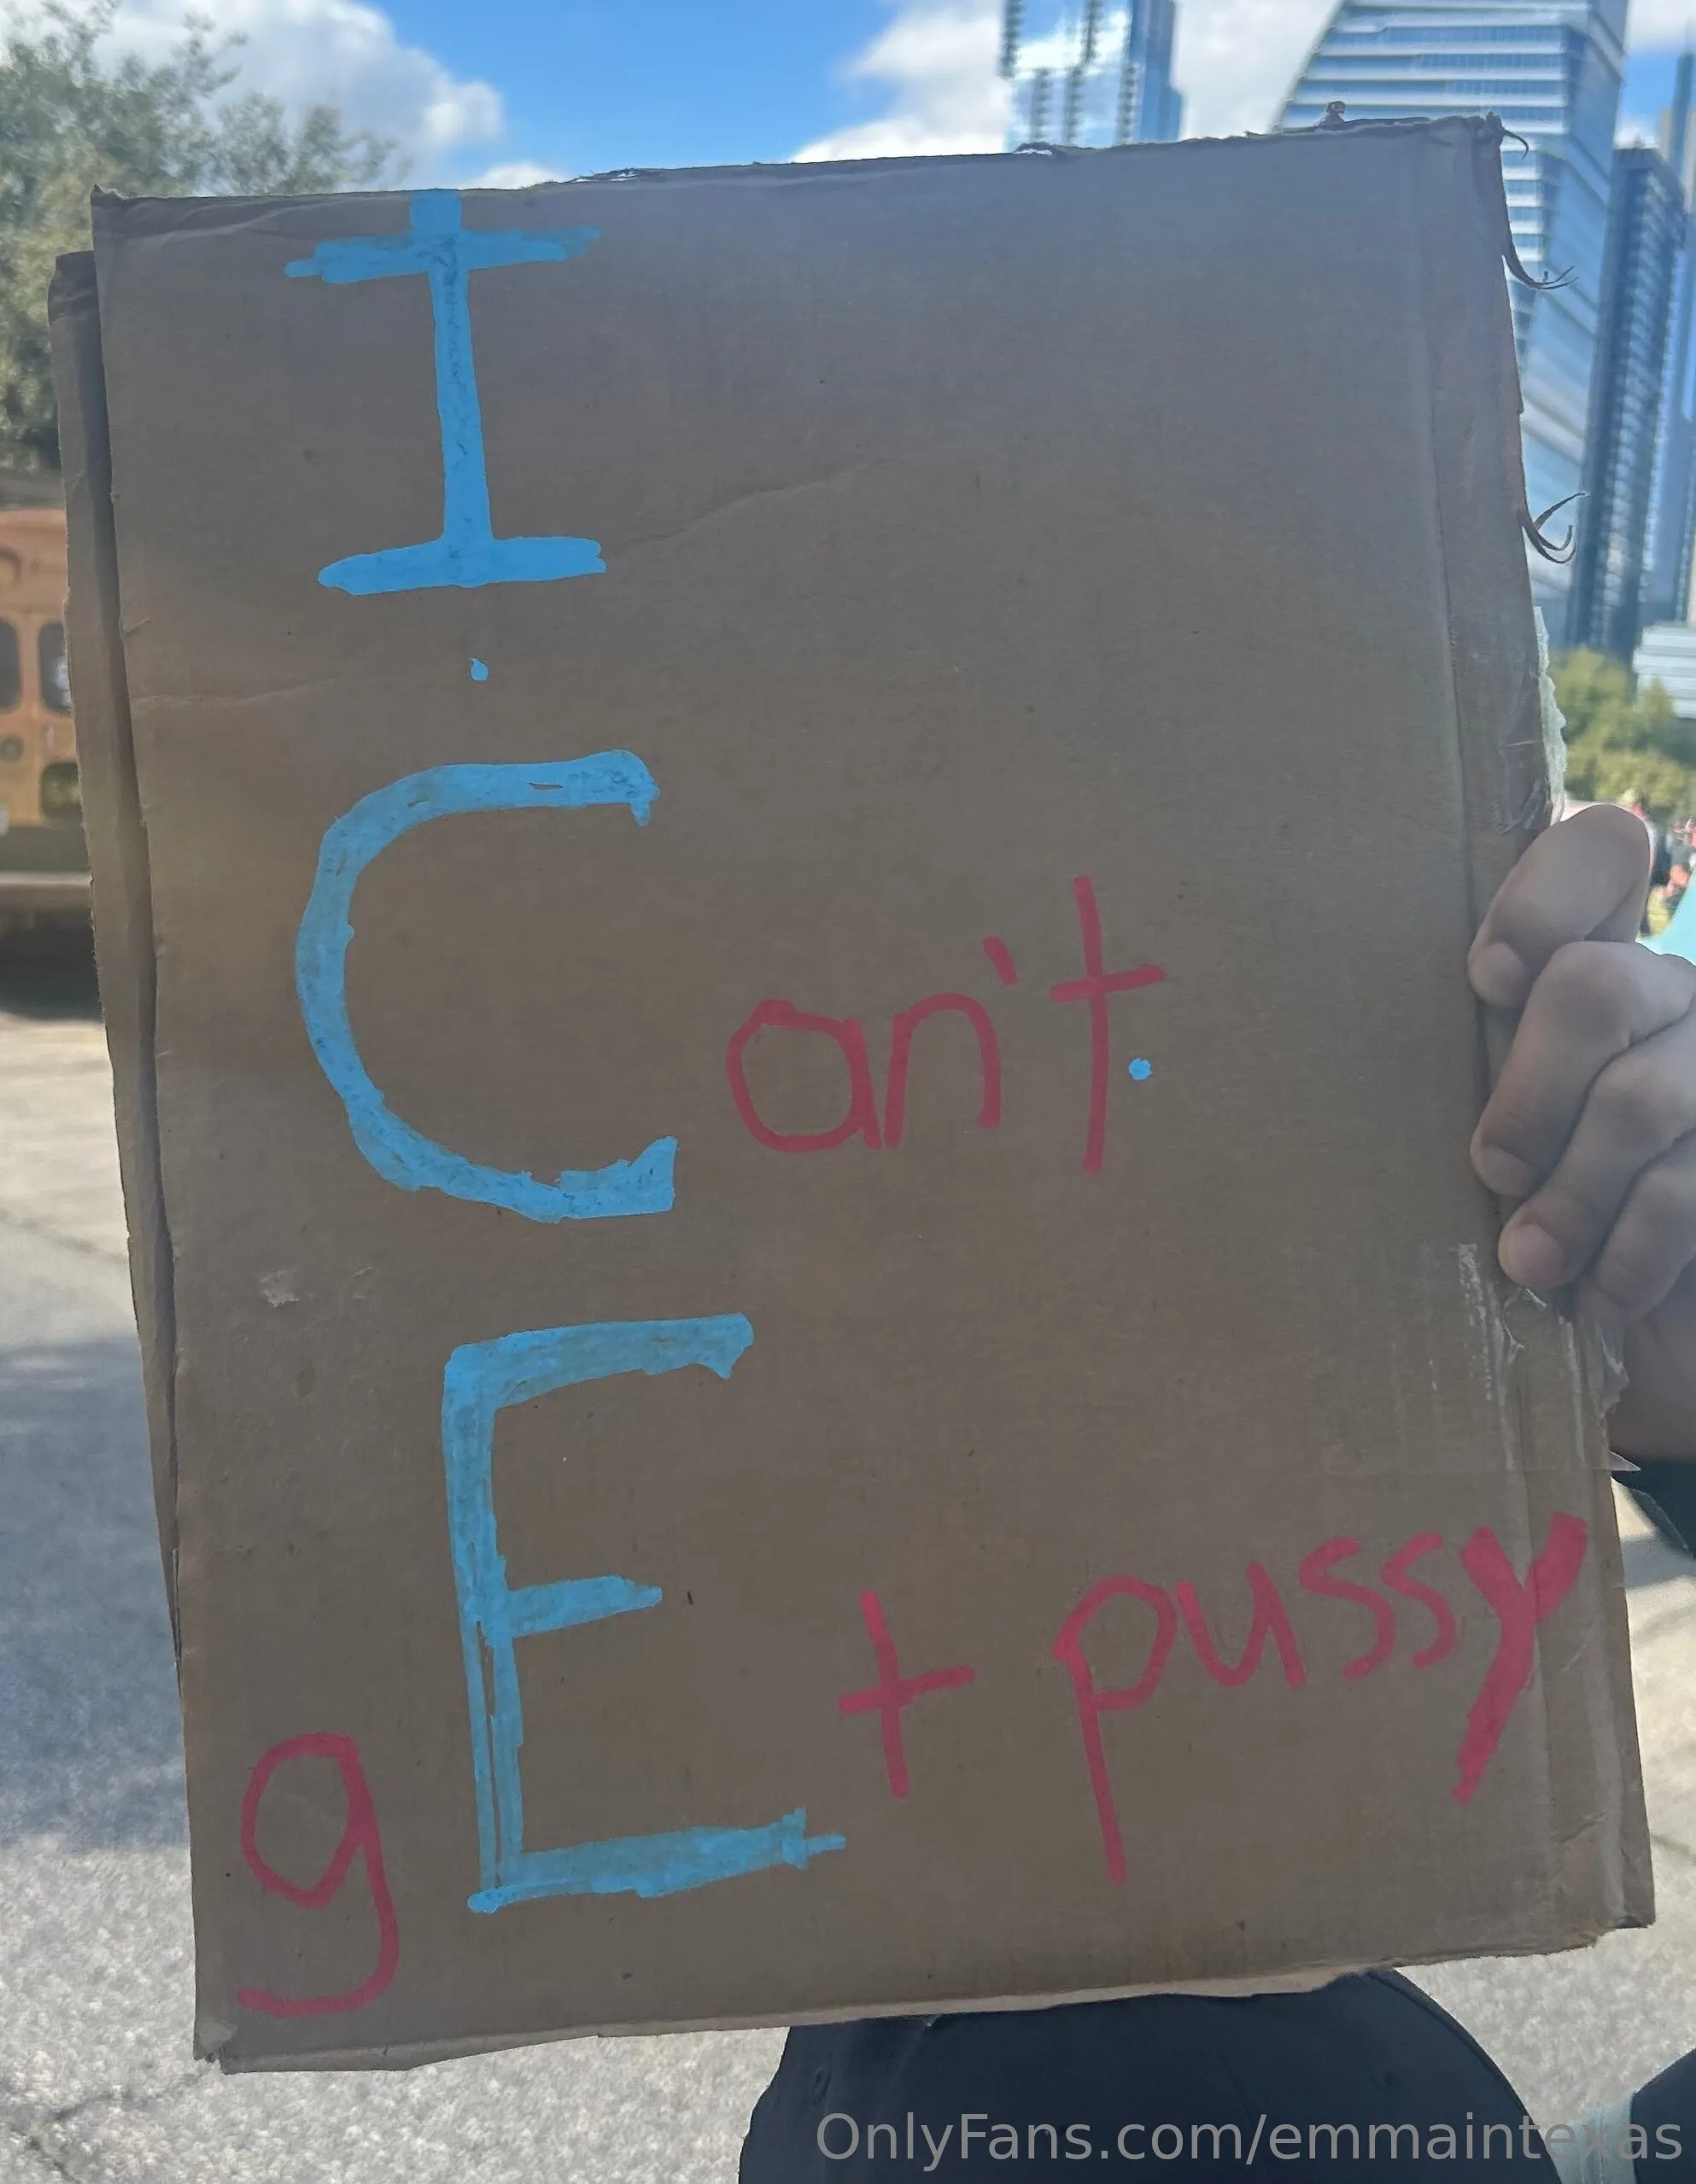 I
Can't
gEt pussy
OnlyFans.com/emmaintexas